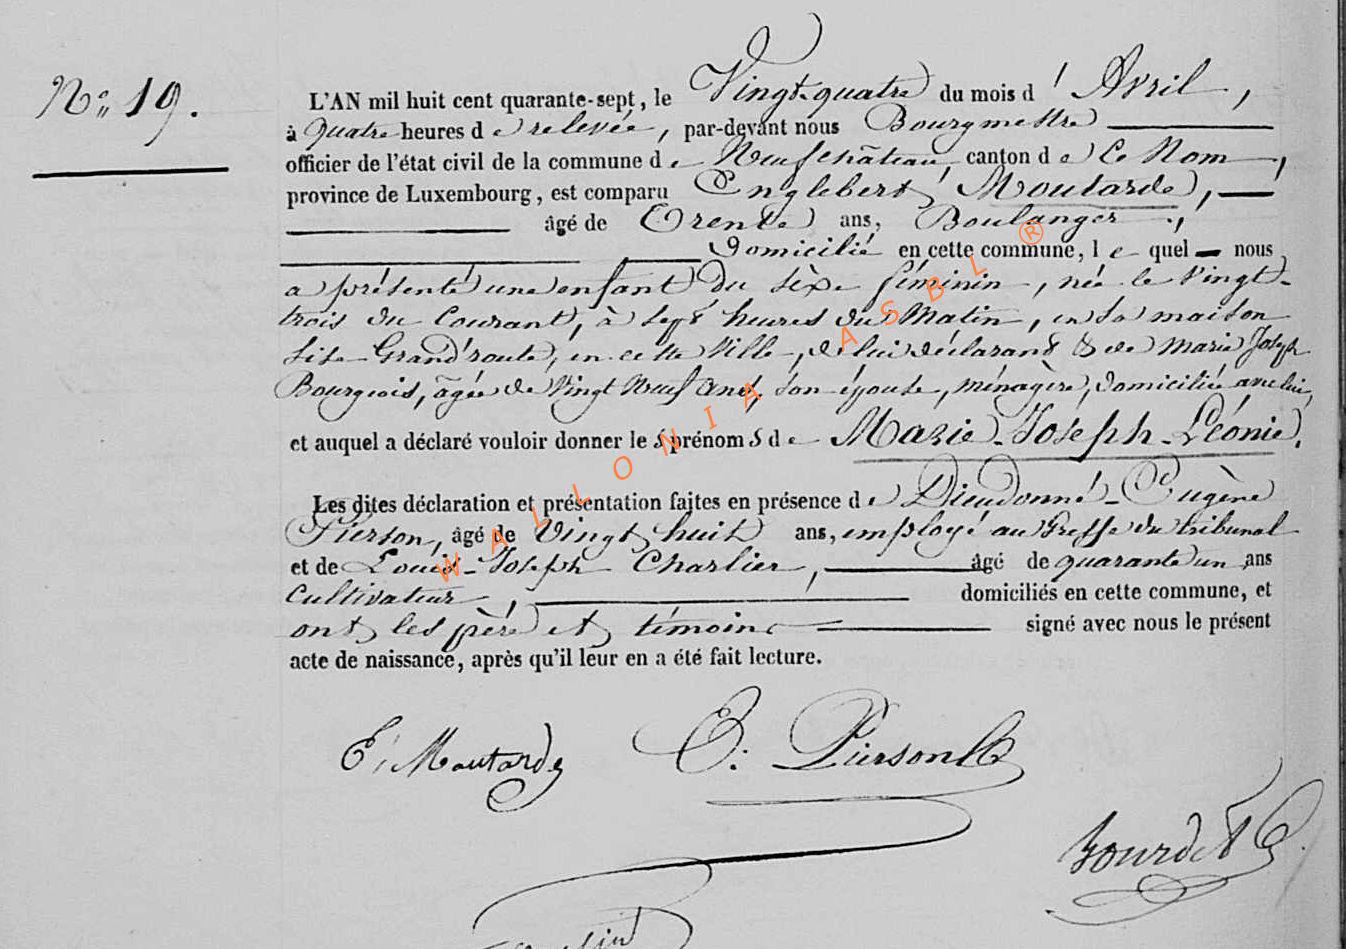 N° 19.
L'AN mil huit cent quarante-sept, le Vingt-quatre du mois d'Avril,
à quatre heures de relevée, par-devant nous Bourgmestre
officier de l'état civil de la commune de Neufchâteau, canton de ce Nom,
province de Luxembourg, est comparu Englebert Moutarde,
âgé de Trente ans, Boulanger,
Domicilié en cette commune, lequel nous
a présenté une enfant du sèxe féminin, née le Vingt-
trois du Courant, à sept heures du Matin, en sa maison
sise Grand'route, en cette Ville, de lui déclarant & de Marie Joseph
Bourgeois, âgée de Vingt Neuf Ans, son épouse, ménagère, domiciliée avec lui,
et auquel a déclaré vouloir donner les prénoms de Marie-Joseph-Léonie.
Les dites déclaration et présentation faites en présence de Dieudonné-Eugène
Pierson, âgé de Vingt huit ans, employé au Greffe du tribunal
et de Louis-Joseph Charlier, âgé de quarante un ans
Cultivateur, domiciliés en cette commune, et
ont les père et témoins signé avec nous le présent
acte de naissance, après qu'il leur en a été fait lecture.
E. Moutarde E. Pierson
WALLONIA ASBL ®